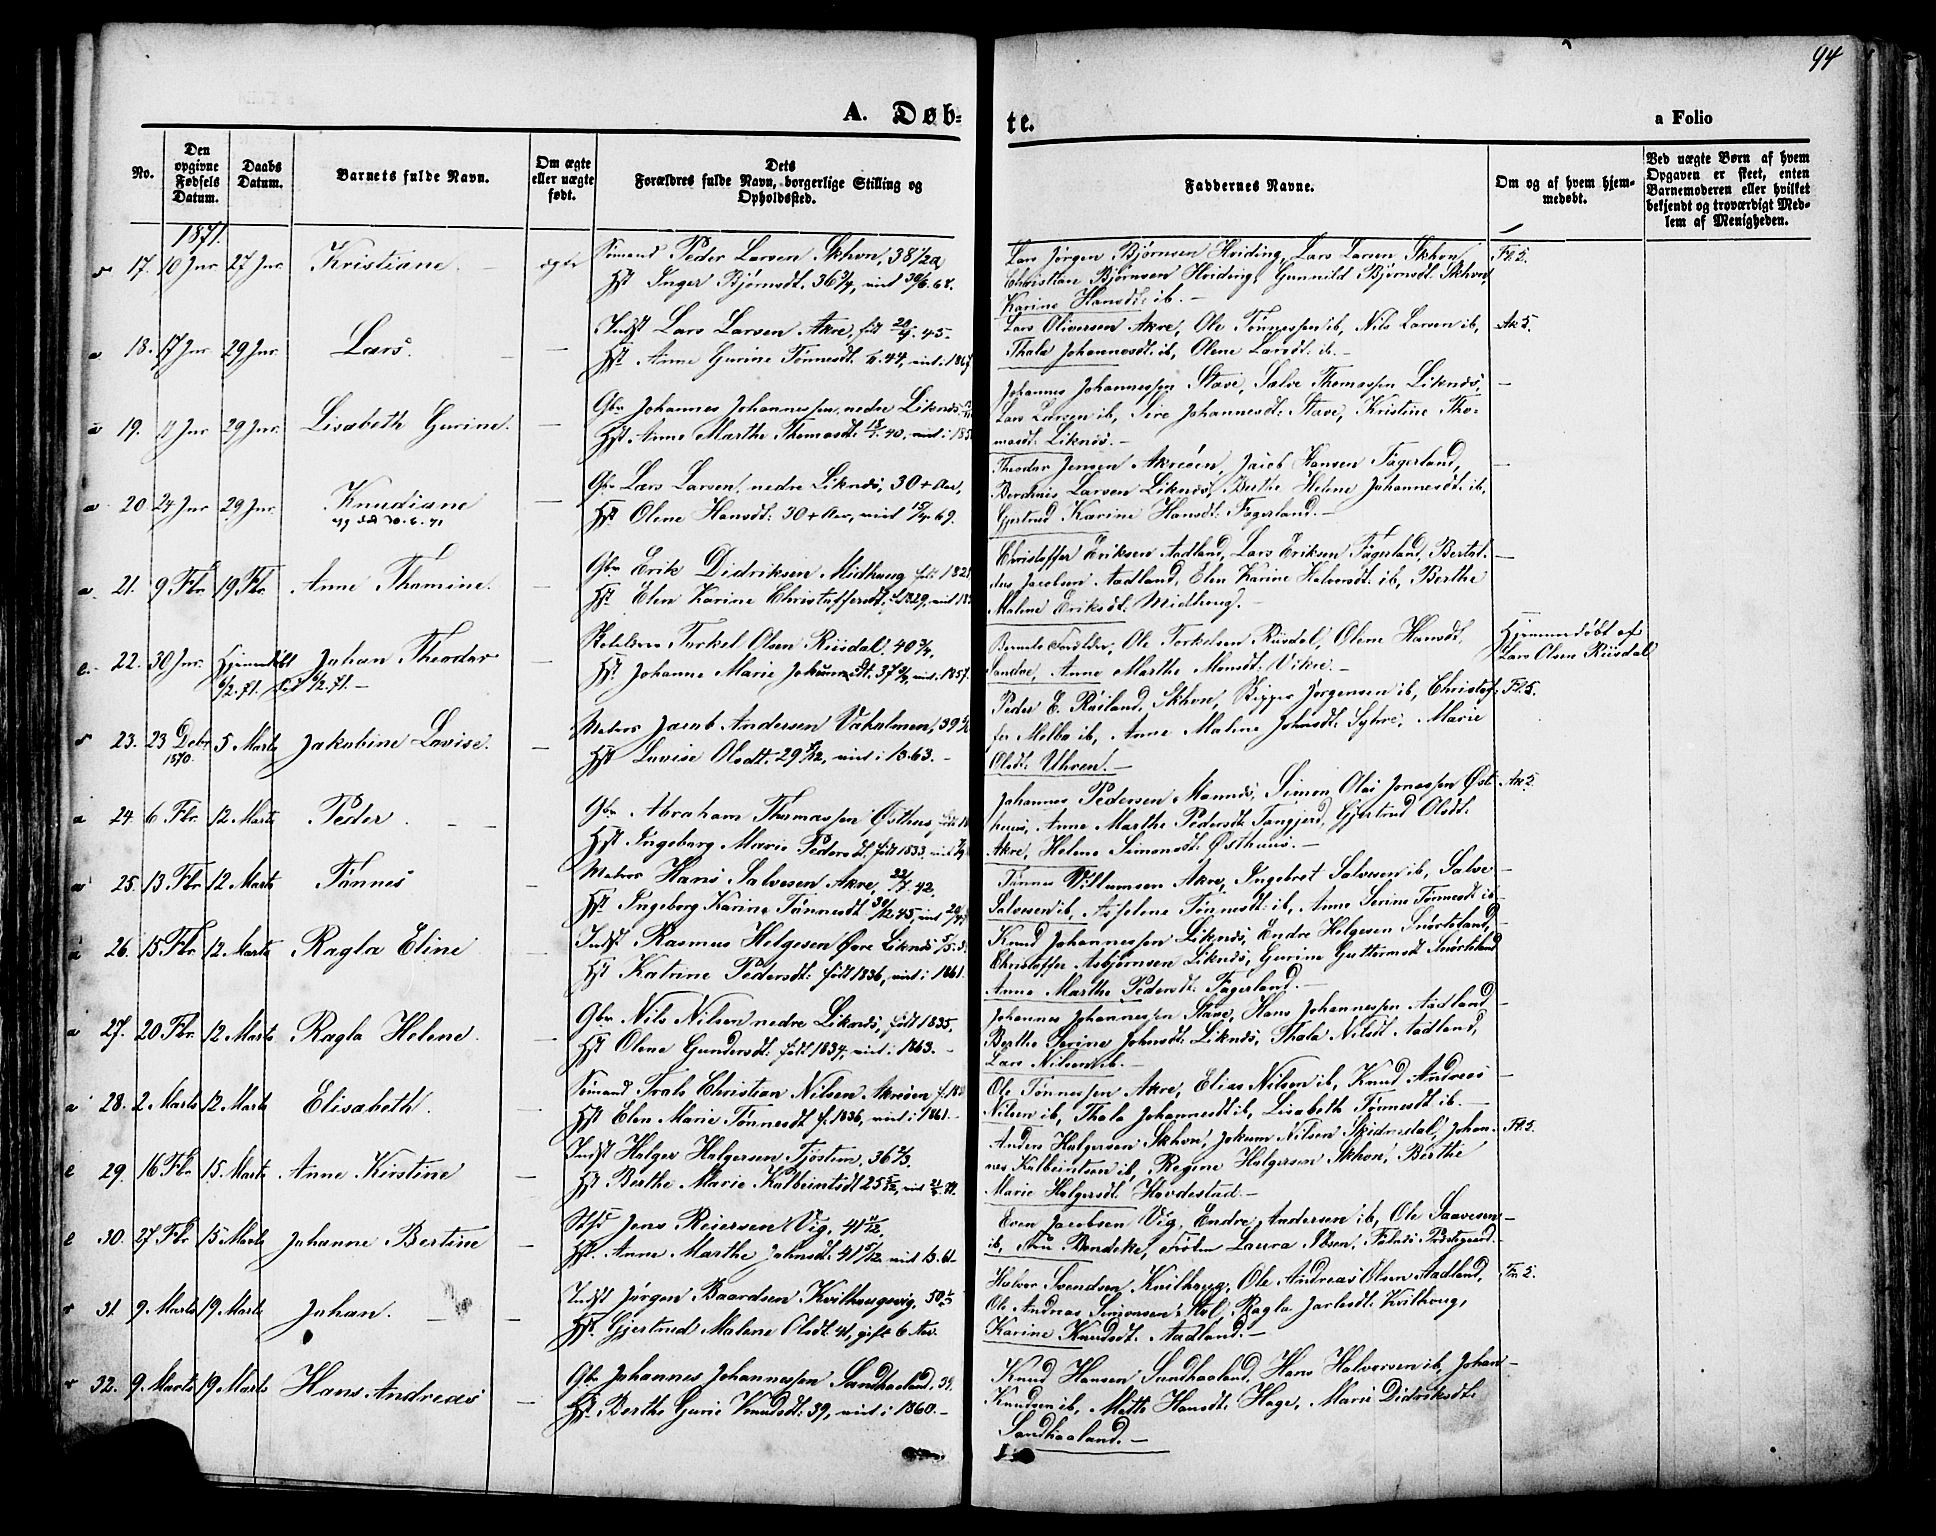 94
A. Døb-
te.
a Folio
No.
Den opgivne Fødsels Datum.
Daabs Datum.
Barnets fulde Navn.
Om ægte eller uægte født.
Dets Forældres fulde Navn, borgerlige Stilling og Opholdssted.
Faddernes Navne.
Om og af hvem hjemmedøbt.
Ved uægte Børn af hvem Opgaven er skeet, enten Barnemoderen eller hvilket bekjendt og troværdigt Medlem af Menigheden.
1871.
17. 10 Jnr 27 Jnr Kristiane. ægte Sømand Peder Larsen Skhvn, 38 1/2 a
Hst Inger Bjørnsdt. 36 3/4, viet 30/6. 64.
Lars Jørgen Bjørnsen Hviding, Lars Larsen Skhvn Fl. S.
Christian Bjørnsen Hviding, Gunnild Bjørnsdt. Skhvn,
Karine Hansdt. ib.
18. 17 Jnr 29 Jnr Lars. Indst Lars Larsen Akre, født 20/4. 45.
Hst Anne Gurine Tønnesdt. 44, viet i 1867
Lars Oliversen Akre, Ole Tønnessen ib, Nils Larsen ib, Ak S.
Thala Johannesdt. ib, Olene Larsdt. ib.
19. Jnr 29 Jnr. Lisabeth Gurine. Gbr Johannes Johannessen nedre Liknæs
Hst. Anne Marthe Thomasdt. 40, viet i
Johannes Johannessen Stave, Salve Thomassen Liknæs,
Lars Larsen ib, Sire Johannesdt. Stave, Kristine Tho-
masdt. Liknæs.
20 24 Jnr 29 Jnr. Knudiane Gbr Lars Larsen, nedre Liknæs, 30 + Aar,
30. 6. 71
Hst Olene Hansdt. 30 + Aar, viet 69.
Theodor Jensen Akreøen, Jacob Hansen Fagerland,
Berdinis Larsen Liknæs, Berthe Helene Johannesdt. ib,
Gjertrud Karine Hansdt. Fagerland.
21. 9 Fbr 19 Fbr. Anne Thomine. Gbr Erik Didriksen Midhaug født 1821
Hst. Elen Karine Christoffersdt. f. 1829, viet
Christoffer Eriksen Aadland, Lars Eriksen Fagerland, Bertel-
Jacobsen Aadland, Elen Karine Halvorsdt. ib, Berthe
Malene Eriksdt. Midhaug.
22. 30 Jnr. Hjemmedøbt Johan Theodor Torkel Olsen Risdal, 40 3/4,
6/2. 71. død 6/2. 71.
Hst. Johanne Marie 37 3/4, viet i 1857.
Barnets Forældre, Ole Torkelsen Risdal, Olene Hansdt. Hjemmedøbt af
Sandve, Anne Marthe Monsdt. Vikre. Lars Olsen Risdal
23. 23 Debr 5 Marts Jakobine Lovise. Matros Jacob Andersen Vaholmen, 39
1870.
Hst Lovise Olsdt. 29, viet i 1863.
Peder E. Røiland, Skhvn, Skipper Jørgensen ib, Christof- Fl. S.
fer Melbo ib, Anne Malene Johnsdt. Syre, Marie
Olsdt. Uhren.
24. 6 Fbr. 12 Marts Peder. Gbr. Abraham Thomassen Østhus,
Hst Ingeborg Marie Pedersdt. født 1833, viet
Johannes Pedersen Mannæs, Simon Olai Jonassen Øst- Ak S.
huus, Anne Marthe Pedersdt. Tangjerd, Gjertrud Olsdt.
Akre, Helene Simonsdt. Østhuus.
25. 13 Fbr 12 Marts Tønnes Matros Hans Salvesen Akre, 42,
Hst. Ingeborg Karine Tønnesdt. 45, viet
Tønnes Villumsen Akre, Ingebret Salvesen ib, Salve
Salvesen ib, Asselene Tønnesdt. ib, Anne Serine Tønnesdt. ib
26. 15 Fbr 12 Marts Ragla Eline Indst Rasmus Helgesen Øvre Liknæs
Hst Katrine Pedersdt. født 1836, viet i 1861.
Knud Johannessen Liknæs, Endre Helgesen Snørteland,
Christoffer Asbjørnsen Liknæs, Gurine Guttormsdt Snørteland
Anne Marthe Pedersdt. Fagerland.
27. 20 Fbr. 12 Marts Ragla Helene. Gbr Nils Nilsen nedre Liknæs, født 1835,
Hst Olene Gundersdt. født 1834, viet i 1863.
Johannes Johannessen Stave, Hans Johannessen Aadland
Berthe Serine Johnsdt. Liknæs, Thala Nilsdt Aadland,
Lars Nilsen ib.
28. 2 Marts 12 Marts Elisabeth. Sømand Trols Christian Nilsen Akreøen
Hst Elen Marie Tønnesdt f. 1836, viet i 1861.
Ole Tønnessen Akre, Elias Nilsen ib, Knud Andreas
Nilsen ib, Thala Johannesdt ib, Lisabeth Tønnesdt ib.
29. 16 Fbr 15. Marts Anne Kirstine Indst Holger Holgersen Tjøstem, 36 2/3.
Hst Berthe Marie Kalbeintsdt 25, viet
Anders Holgersen Skhvn, Jokum Nilsen Skidresdal, Johan- Fl. S.
nes Kalbeintsen ib, Regine Holgersen Skhvn, Berthe
Marie Holgersdt. Hovdestad.
30. 27 Fbr 15 Marts Johanne Bertine Jens Reiersen Vig, 41
Hst. Anne Marthe Johnsdt. 41, viet 13. 61.
Even Jacobsen Vig, Endre Andersen ib, Ole Saavesen
ib, Bendeke, Frøken Laura
31. 9. Marts 19 Marts Johan. Indst Jørgen Baardsen Kvilhaugsvig, 50 1/3
Hst. Gjertrud Malene Olsdt. 41, gift 6 Aar.
Halvor Svendsen Kvilhaug, Ole Andreas Olsen Aadland, Fr. S.
Ole Andreas Simonsen Stol, Ragla Jarlsdt. Kvilhaug,
Karine Knudsdt. Aadland.
32. 9. Marts 19 Marts Hans Andreas Gbr. Johannes Johannessen Sandhaaland, 34.
Hst. Berthe Gurie Knudsdt. 39, viet i 1860.
Knud Hansen Sandhaaland, Hans Halvorsen ib, Johan
Knudsen ib, Mette Hansdt. Hage, Marie Didriksdt.
Sandhaaland.